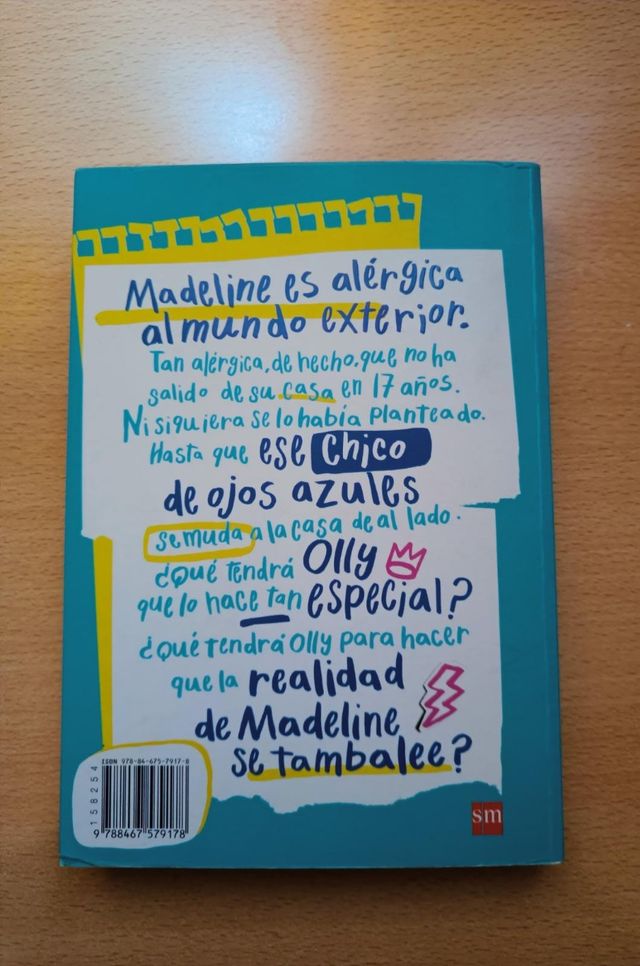 Madeline es alérgica
al mundo exterior.
Tan alérgica, de hecho, que no ha
salido de su casa en 17 años.
Ni siquiera se lo había planteado.
Hasta que ese chico
de ojos azules
se muda a la casa de al lado.
¿Qué tendrá Olly
que lo hace tan especial?
¿Qué tendrá Olly para hacer
que la realidad
de Madeline
se tambalee?
ISBN 978-84-675-7917-8
158254
9 788467 579178
sm